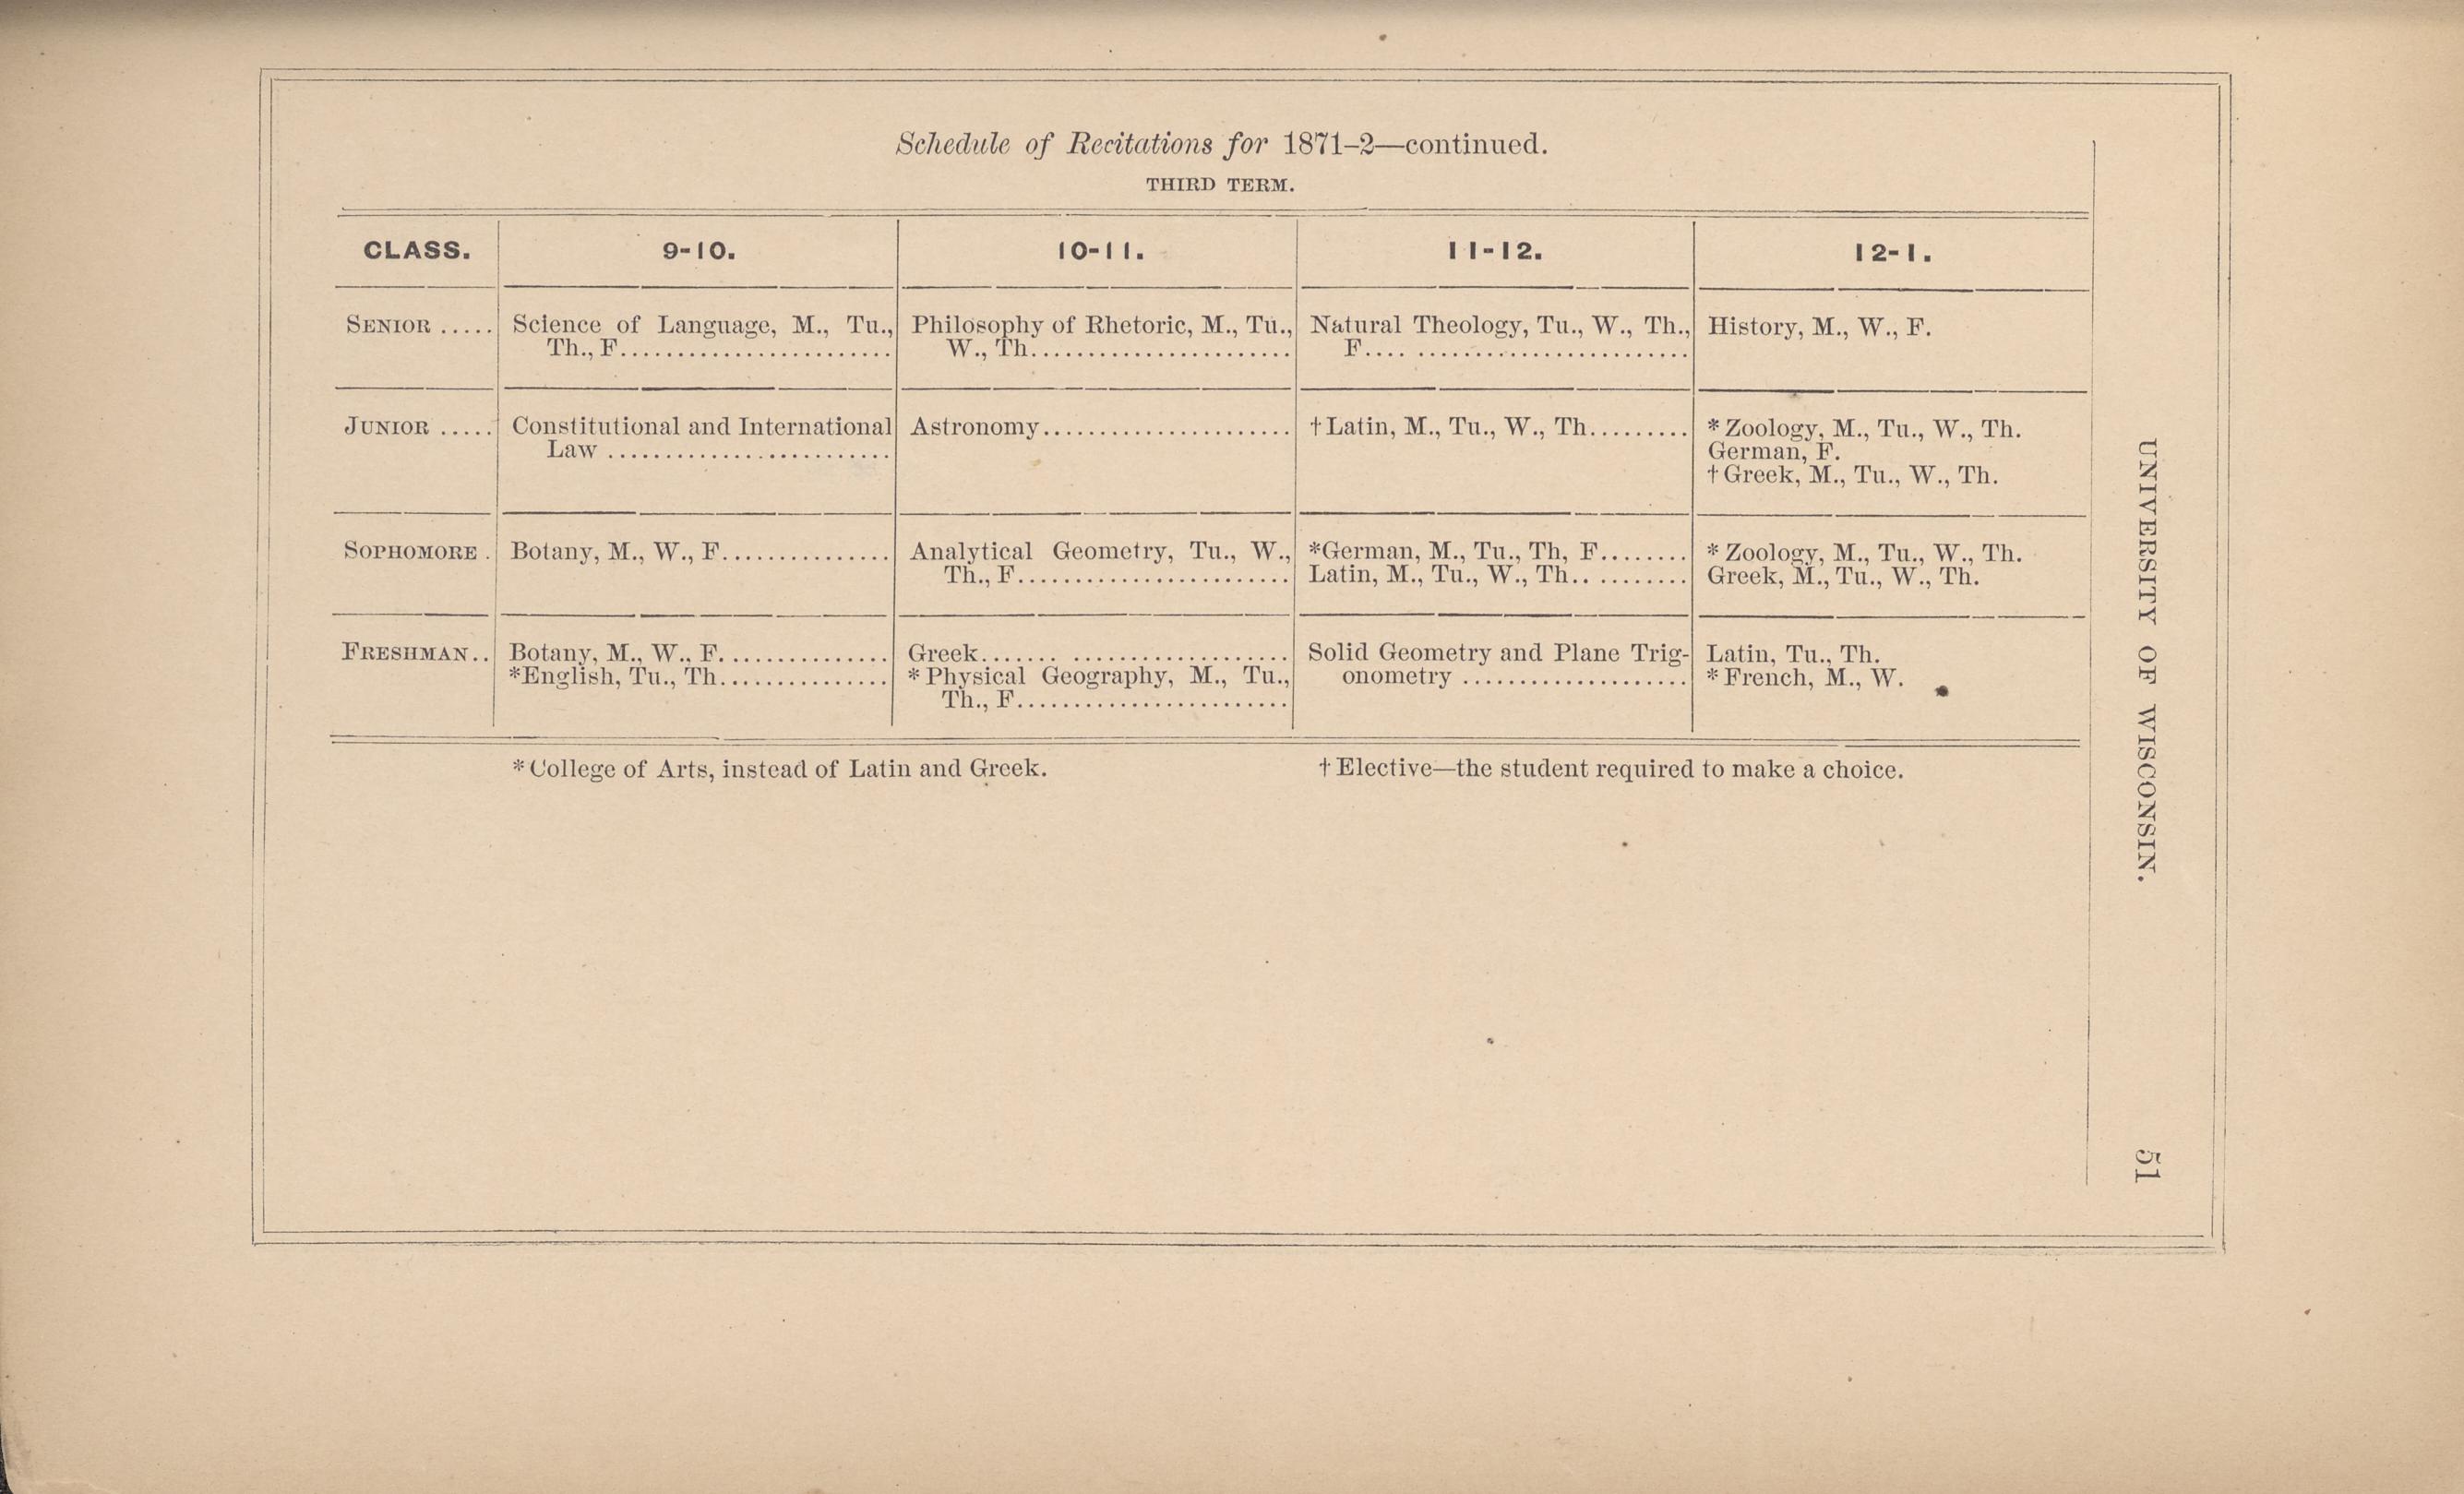 Schedule of Recitations for 1871–2—continued.
THIRD TERM.
CLASS. 9-10. 10-11. 11-12. 12-1.
SENIOR ..... Science of Language, M., Tu., Th., F........................ Philosophy of Rhetoric, M., Tu., W., Th....................... Natural Theology, Tu., W., Th., F.... ........................ History, M., W., F.
JUNIOR ..... Constitutional and International Law ......................... Astronomy...................... † Latin, M., Tu., W., Th......... * Zoology, M., Tu., W., Th.
German, F.
† Greek, M., Tu., W., Th.
SOPHOMORE . Botany, M., W., F............... Analytical Geometry, Tu., W., Th., F........................ *German, M., Tu., Th, F........ * Zoology, M., Tu., W., Th.
Latin, M., Tu., W., Th.. ......... Greek, M., Tu., W., Th.
FRESHMAN.. Botany, M., W., F............... Greek....... ................... Solid Geometry and Plane Trig- Latin, Tu., Th.
*English, Tu., Th............... * Physical Geography, M., Tu., onometry .................... * French, M., W.
Th., F........................
* College of Arts, instead of Latin and Greek. † Elective—the student required to make a choice.
UNIVERSITY OF WISCONSIN.
51